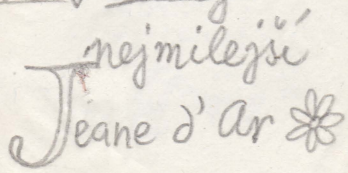 nejmilejší
Jeane d'Ar